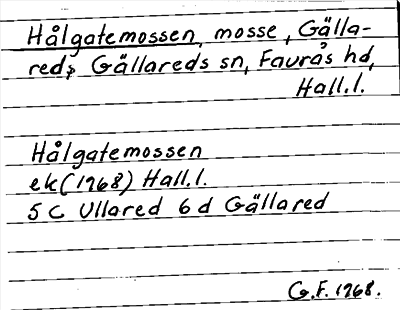 Hålgatemossen, mosse, Gälla-
reds Gällareds sn, Faurås hd,
Hall.l.
Hålgatemossen
ek (1968) Hall.l.
5 C Ullared 6 d Gällared
G.F. 1968.